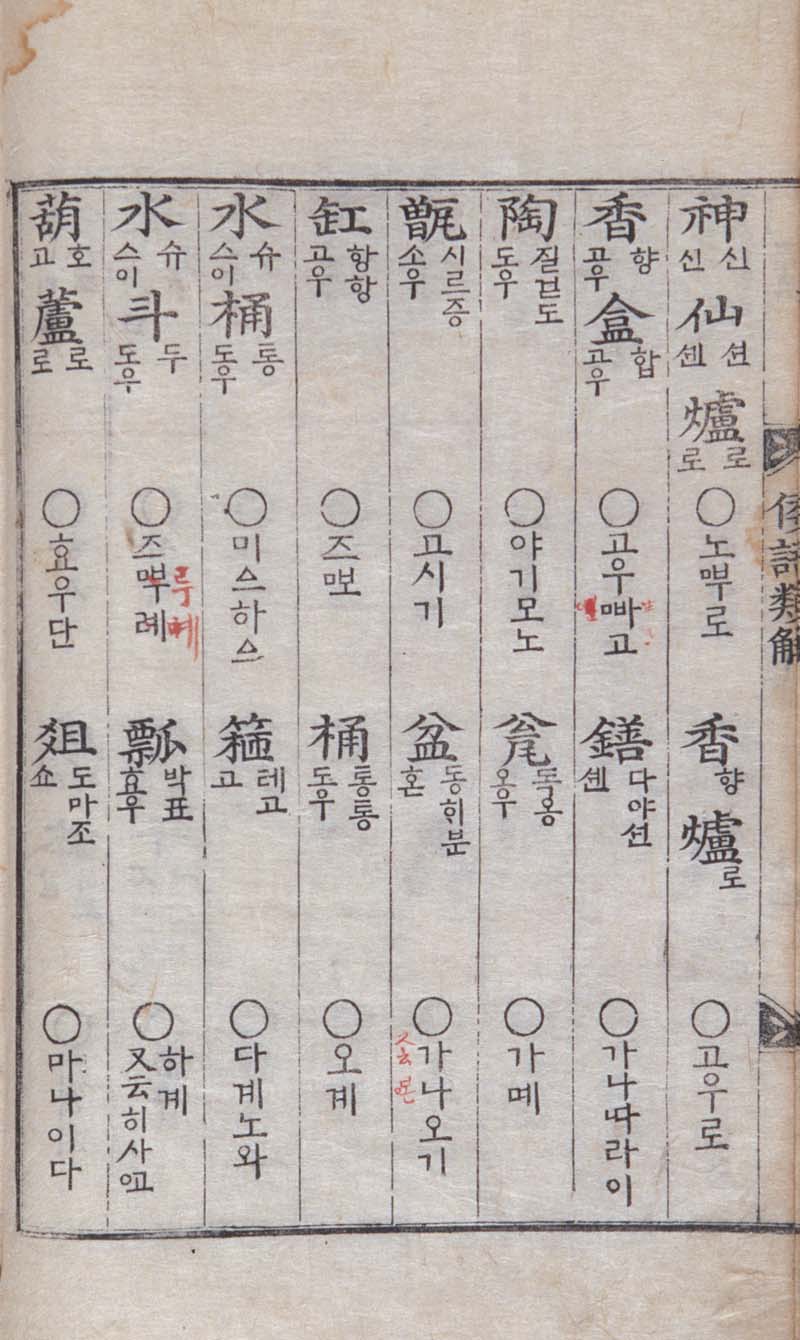 倭語類解
神 신 신 仙 션 센 爐 로 로 ○노ᄜᅮ로 香 향 爐 로 ○고우로
香 향 고우 盒 합 고우 ○고우ᄜᅡ고 鐥 다야션 센 ○가나ᄕᅡ라이
陶 질걷도 도우 ○야기모노 瓮 독옹 옹우 ○가몌
甑 시르증 소우 ○고시기 盆 동히분 혼 ○가나오기 又云 본
缸 항항 고우 ○즈ᄜᅩ 桶 통통 도우 ○오계
水 슈 스이 桶 통 도우 ○미스하스 箍 레고 고 ○다계노와
水 슈 스이 斗 두 도우 ○즈ᄜᅮ례 루 볘 瓢 박표 효우 ○하계 又云히사ᅁᅩ
葫 호 고 蘆 로 로 ○효우단 爼 도마조 쇼 ○마나이다